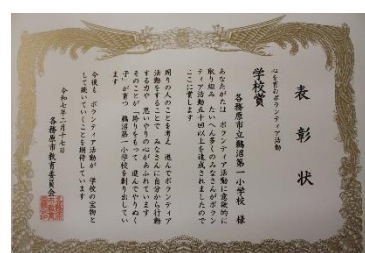 表彰状
心を育むボランティア活動
学校賞
各務原市立鵜沼第一小学校 様
あなたがたは ボランティア活動に意欲的に
取り組み たいへん多くのみなさんがボラン
ティア活動五十回以上を達成されましたので
ここに賞します
周りの人のことを考え 進んでボランティア
活動をすることで みなさんに自分から行動
する力や 思いやりの心があふれています
そのことが「誇りをもって 進んでやりぬく
子」が育つ 鵜沼第一小学校を創り出してい
ます
今後も ボランティア活動が 学校の宝物と
して続いていくことを期待しています
令和七年二月十七日
各務原市教育委員会